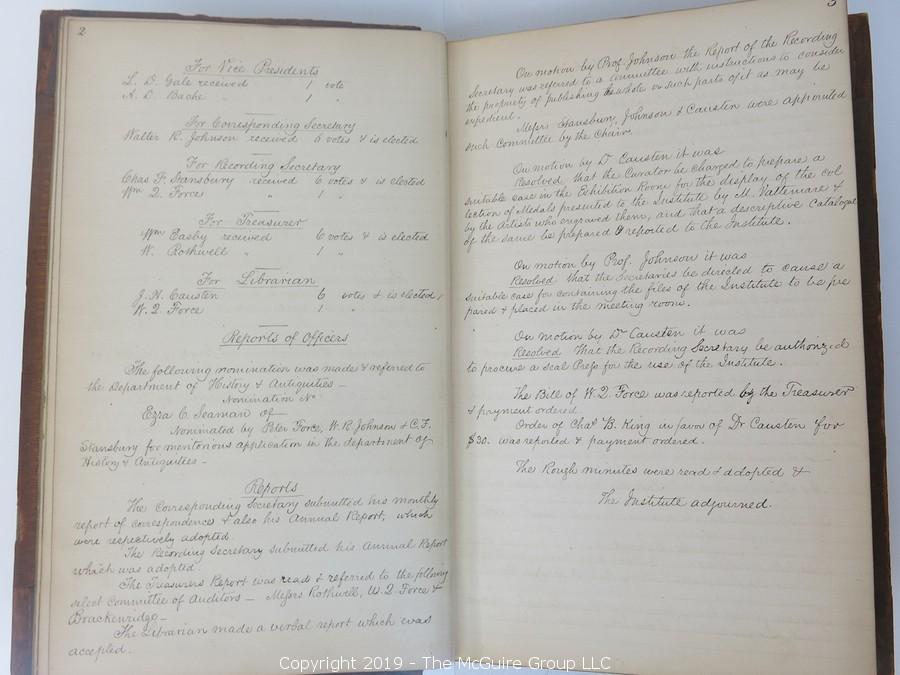 2
For Vice Presidents
L. D. Gale received 1 vote
A. D. Bache " 1 "
For Corresponding Secretary
Walter R. Johnson received 6 votes & is elected
For Recording Secretary
Chas F. Stansbury received 6 votes & is elected
Wm Q. Force " 1 "
For Treasurer
Wm Easby received 6 votes & is elected
W. Rothwell " 1 "
For Librarian
J. H. Causten 6 votes & is elected
W. Q. Force 1 "
Reports of Officers
The following nomination was made & referred to
the Department of History & Antiquities —
Nomination No
Ezra C. Seaman of —
Nominated by Peter Force, W. R. Johnson & C. F.
Stansbury for meritorious application in the department of
History & Antiquities —
Reports
The Corresponding Secretary submitted his monthly
report of correspondence & also his Annual Report, which
were respectively adopted.
The Recording Secretary submitted his Annual Report
which was adopted.
The Treasurers Report was read & referred to the following
select Committee of Auditors — Messrs Rothwell, W. Q. Force &
Brackenridge —
The Librarian made a verbal report which was
accepted.
3
On motion by Prof. Johnson the Report of the Recording
Secretary was referred to a Committee with instructions to consider
the propriety of publishing the whole or such parts of it as may be
expedient.
Messrs Stansbury, Johnson & Causten were appointed
such Committee by the Chair.
On motion by Dr Causten it was
Resolved that the Curator be charged to prepare a
suitable case in the Exhibition Room for the display of the col
lection of Medals presented to the Institute by M. Vattemare &
by the Artists who engraved them, and that a descriptive Catalogue
of the same be prepared & reported to the Institute.
On motion by Prof. Johnson it was
Resolved That the Secretaries be directed to cause a
suitable case for containing the files of the Institute to be pre
pared & placed in the meeting rooms.
On motion by Dr Causten it was
Resolved That the Recording Secretary be authorized
to procure a seal Press for the use of the Institute.
The Bill of W. Q. Force was reported by the Treasurer
& payment ordered
Order of Chas B. King in favor of Dr Causten for
$30. was reported & payment ordered.
The Rough minutes were read & adopted &
The Institute adjourned.
Copyright 2019 - The McGuire Group LLC